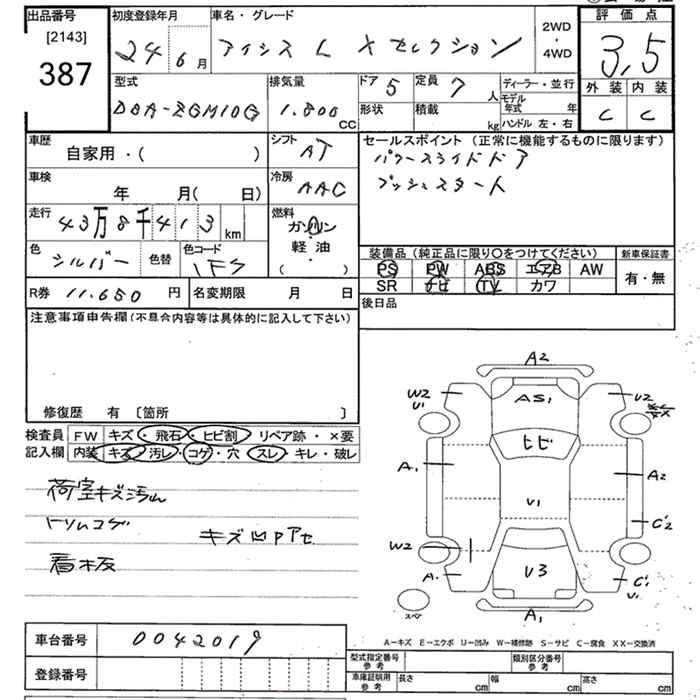 出品番号 初度登録年月 車名・グレード 2WD・4WD 評価点
[2143]
387
24 6月 アイシス L Xセレクション 3.5
型式 排気量 ドア 5 定員 7人 ディーラー・並行 外装 内装
DBA-ZGM10G 1.800 CC 形状 積載 kg モデル年式 年 C C
ハンドル 左・右
車歴 シフト セールスポイント (正常に機能するものに限ります)
自家用・( ) AT パワースライドドア
車検 冷房 プッシュスタート
年 月( 日) AAC
走行 43万8千413km 燃料
ガソリン
軽・油
( )
色 シルバー 色替 色コード 1F7
装備品 (純正品に限り○をつけてください) 新車保証書
PS PW ABS エアB AW 有・無
SR ナビ TV カワ
R券 11.650円 名変期限 月 日 後日品
注意事項申告欄 (不具合内容等は具体的に記入して下さい)
修復歴 有 〔箇所 〕
検査員 FW キズ・飛石・ヒビ割・リペア跡・×要
記入欄 内装 キズ・汚レ・コゲ・穴・スレ・キレ・破レ
荷室キズ汚レ
トリムコゲ
キズ凹Pアセ
看板
A2
W2 U1 AS1 U2
ヒビ
A1 A2
U1
C'2
W2
A1 U3 C'1 U1
スペア A1
A-キズ E-エクボ U-凹み W-補修跡 S-サビ C-腐食 XX-交換済
車台番号 0042019
登録番号
型式指定番号 参考 類別区分番号 参考
車庫証明用 参考 長さ cm 幅 cm 高さ cm